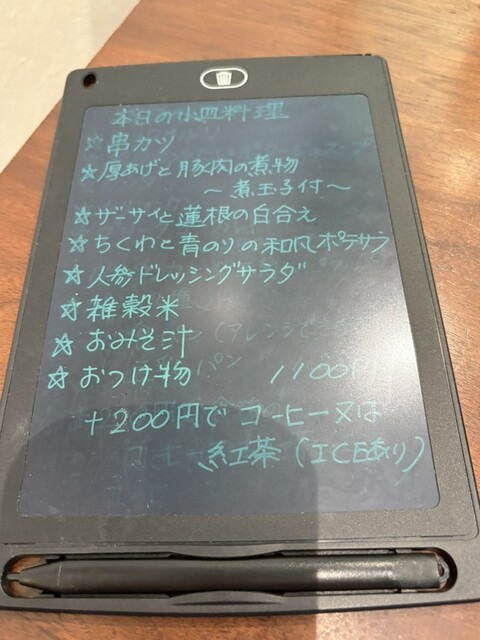 本日の小皿料理
☆串カツ
☆厚あげと豚肉の煮物
～煮玉子付～
☆ザーサイと蓮根の白合え
☆ちくわと青のりの和風ポテサラ
☆人参ドレッシングサラダ
☆雑穀米
☆おみそ汁
☆おつけ物 1100円
+200円でコーヒー又は
紅茶(ICEあり)